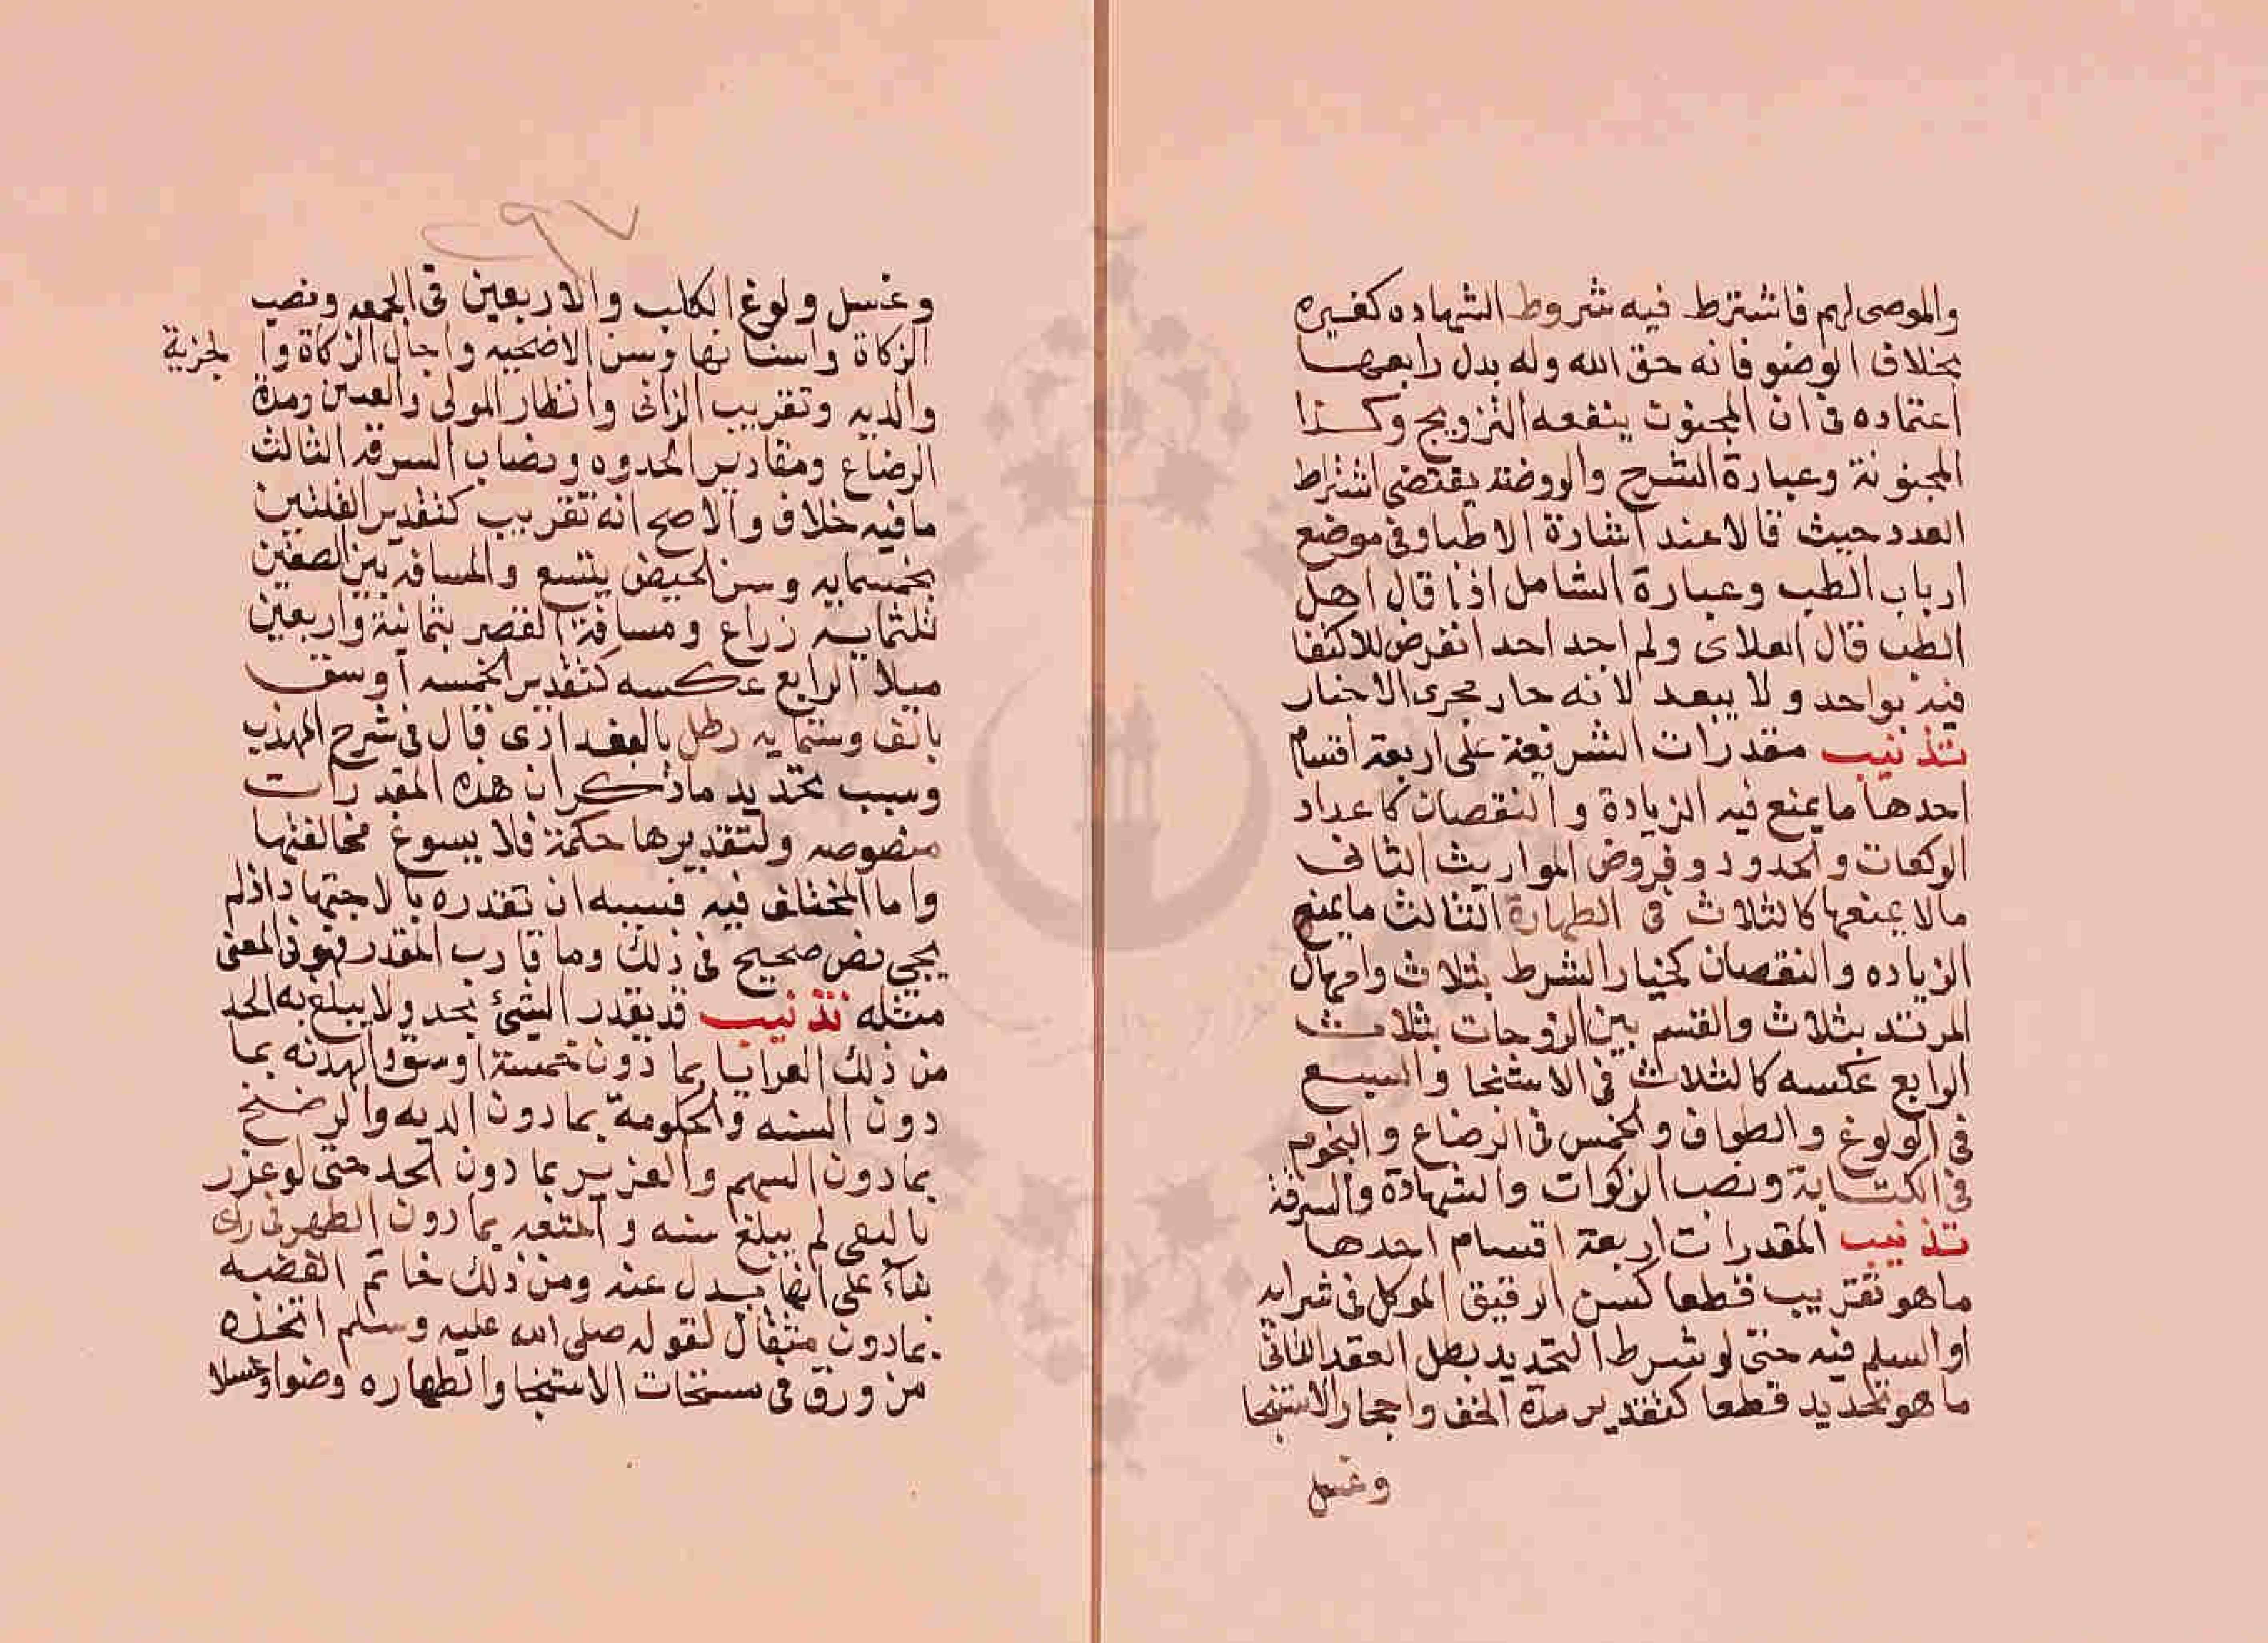 والموصى لهم فاشترط فيه شروط الشهاده كغيره
بخلاف الوضو فانه حق الله وله بدل رابعها
اعتماده فى ان المجنون ينفعه التزويج وكذا
المجنونة وعبارة الشرح والروضة يقتضى اشتراط
العدد حيث قالا عند اشارة الاطبا وفى موضع
ارباب الطب وعبارة الشامل اذا قال اهل
الطب قال العلاى ولم اجد احدا تعرض للاكتفا
فيه بواحد ولا يبعد لانه جار مجرى الاخبار
تذنيب مقدرات الشريعة على اربعة اقسام
احدها ما يمنع فيه الزيادة والنقصان كاعداد
الركعات والحدود وفروض المواريث الثانى
مالا يمنعها كالثلاث فى الطهارة الثالث ما يمنع
الزياده والنقصان كخيار الشرط بثلاث وامهال
المرتد بثلاث والقسم بين الزوجات بثلاث
الرابع عكسه كالثلاث فى الاستنجا والسبع
فى الولوغ والطواف والخمس فى الرضاع والنجوم
فى الكتابة ونصب الزكوات والشهادة والسرقة
تذنيب المقدرات اربعة اقسام احدها
ماهو تقريب قطعا كسن الرقيق الموكل فى شرايه
او السلم فيه حتى لو شرط التحديد بطل العقد الثانى
ماهو تحديد قطعا كتقدير مدة الخف واحجار الاستنجا
وغسل
٩٧
وغسل ولوغ الكلب والاربعين فى الجمعه ونصب
الزكاة واسنانها وسن الاضحيه واجال الزكاة والجزية
والديه وتغريب الزانى وانظار المولى والعنين ومدة
الرضاع ومقادير الحدود ونصاب السرقه الثالث
مافيه خلاف والاصح انه تقريب كتقدير القلتين
بخمسمايه وسن الحيض بتسع والمسافه بين الصفين
ثلثمايه زراع ومسافة القصر بثمانية واربعين
ميلا الرابع عكسه كتقدير الخمسه اوسق
بالف وستمايه رطل بالبغدادى قال فى شرح المهذب
وسبب تحديد ماذكر ان هذه المقدرات
منصوصه ولتقديرها حكمة فلا يسوغ مخالفتها
واما المختلف فيه فسببه ان تقدره بالاجتهاد اذ لم
يجى نص صحيح فى ذلك وما قارب المقدر فهو فى المعنى
مثله تذنيب قد يقدر الشئ بحد ولا يبلغ به الحد
من ذلك العرايا بما دون خمسة اوسق والهدنه بما
دون السنه والحكومة بما دون الديه والرضخ
بما دون السهم والتعزير بما دون الحد حتى لو عزر
بالنفى لم يبلغ سنه والمتعه بما دون المهر فى راى
بناء على انها بدل عنه ومن ذلك خاتم الفضه
بما دون مثقال لقوله صلى الله عليه وسلم اتخذه
من ورق فى سنخات الاستنجا والطهاره وضوا وغسلا